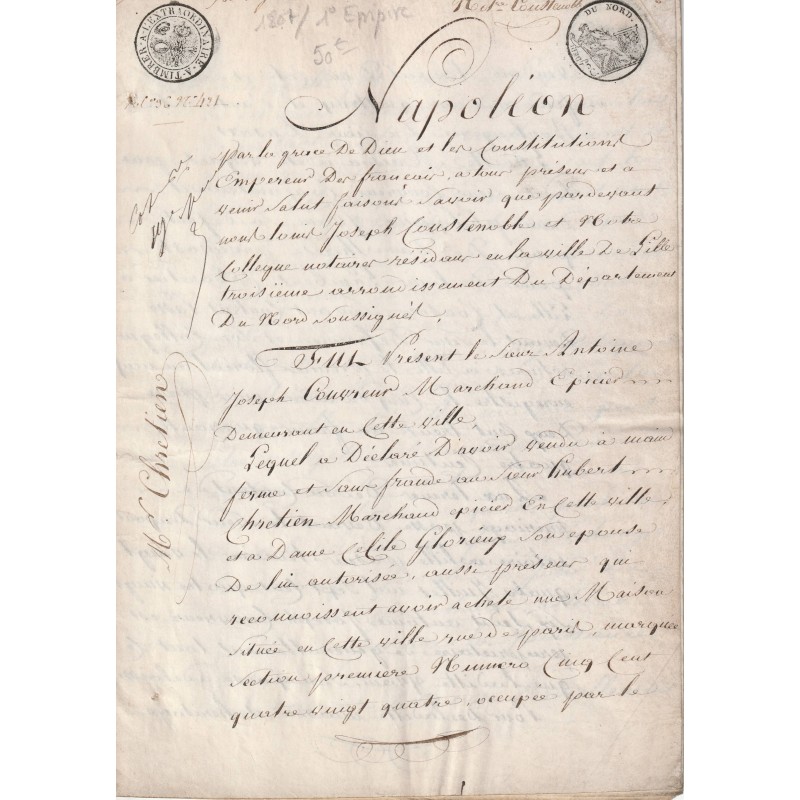 1807/ 1° Empire
50 €
Mtre Coustenoble
A TIMBRER A L'EXTRAORDINAIRE
DU NORD.
Napoléon
par la grace De Dieu et les Constitutions
Empereur Des francais, a tous présens et a
venir Salut faisons Savoir que pardevant
nous louis Joseph Coustenoble et Notre
Collegue notaires résidans en la ville De Lille
troisiéme arrondissement Du Département
Du Nord Soussignés.
Fut Présent le Sieur Antoine
Joseph Couvreur Marchand Epicier
Demeurant en Cette ville
Lequel a Déclaré D'avoir vendu à main
ferme et Sans fraude au Sieur hubert
Chretien Marchand epicier En Cette ville
et a Dame Celile Glorieux Son epouse
De lui autorisée, aussi présens qui
reconnoissent avoir acheté une Maison
Située en Cette ville rue de paris, marquée
Section premiere Numero Cinq Cent
quatre vingt quatre, occupée par le
Mr Chretien